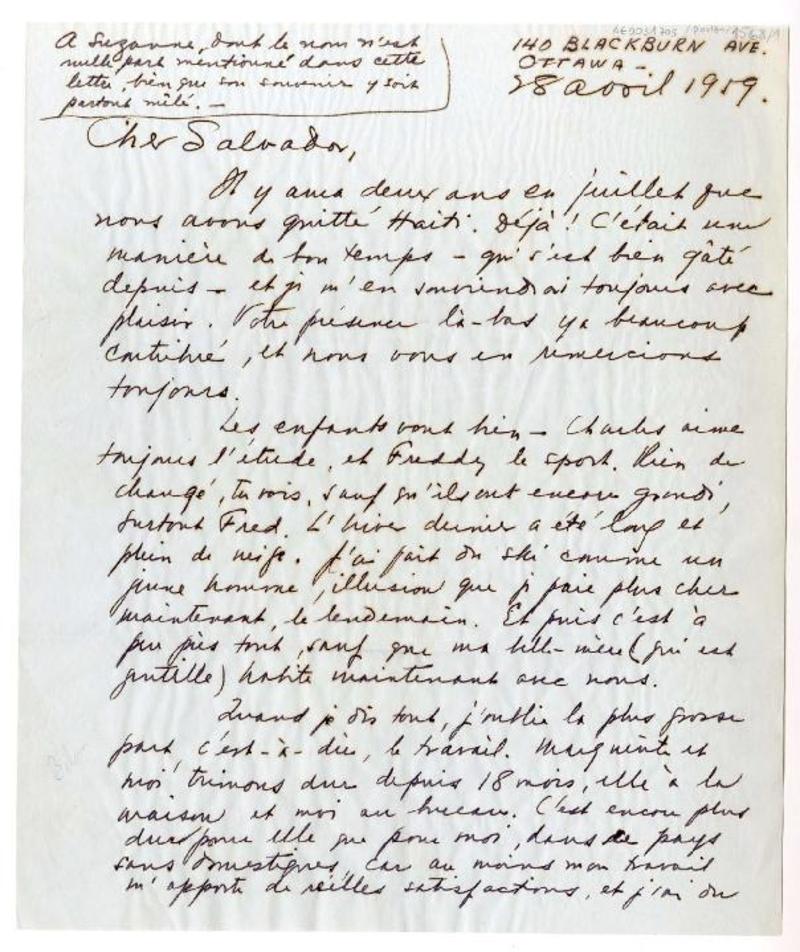 A Suzanne, dont le nom n'est
nulle part mentionné dans cette
lettre, bien que son souvenir y soit
partout mêlé. —
140 BLACKBURN AVE.
OTTAWA —
28 avril 1959.
Cher Salvador,
Il y aura deux ans en juillet que
nous avons quitté Haïti. Déjà! C'était une
manière de bon temps — qui s'est bien gâté
depuis — et je m'en souviendrai toujours avec
plaisir. Votre présence là-bas y a beaucoup
contribué, et nous vous en remercions
toujours.
Les enfants vont bien — Charles aime
toujours l'étude, et Freddy le sport. Rien de
changé, tu vois, sauf qu'ils ont encore grandi,
surtout Fred. L'hiver dernier a été long et
plein de neige. J'ai fait du ski comme un
jeune homme, illusion que je paie plus cher
maintenant, le lendemain. Et puis c'est à
peu près tout, sauf que ma belle-mère (qui est
gentille) habite maintenant avec nous.
Quand je dis tout, j'oublie la plus grosse
part, c'est-à-dire, le travail. Marguerite et
moi trimons dur depuis 18 mois, elle à la
maison et moi au bureau. C'est encore plus
dur pour elle que pour moi, dans ce pays
sans domestiques, car au moins mon travail
m'apporte de réelles satisfactions, et j'ai du